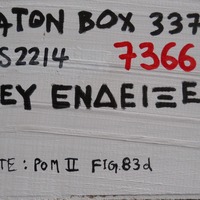 ATON BOX 337
S2214 7366
ΕΥ ΕΝΔΕΙΞΕ
TE : POM II FIG.83d